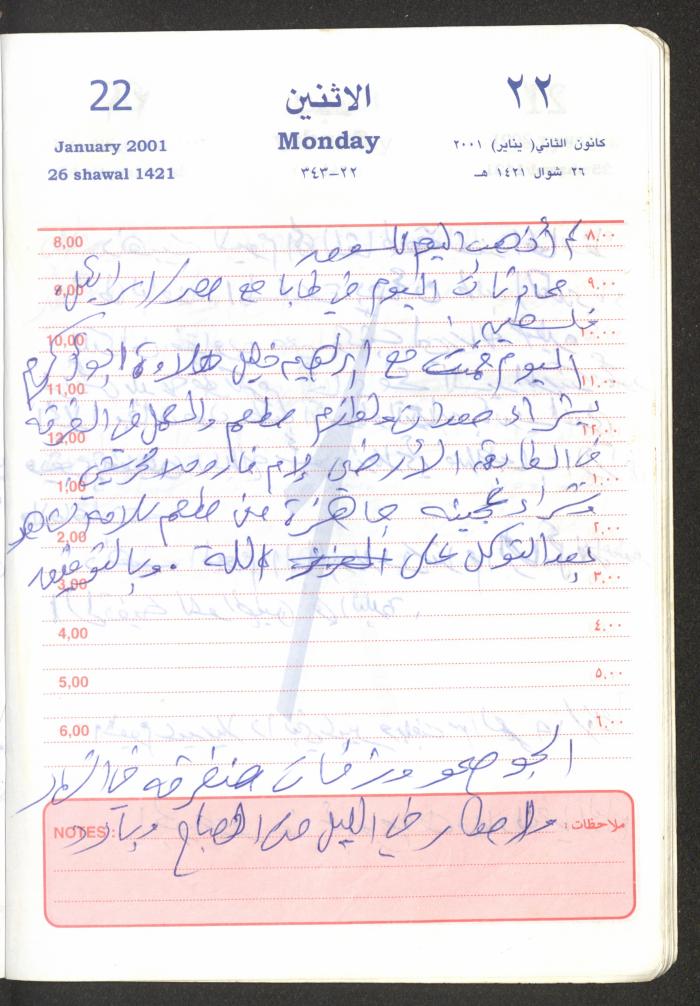 22
الاثنين
٢٢
January 2001
Monday
كانون الثاني( يناير) ٢٠٠١
26 shawal 1421
٢٢-٣٤٣
٢٦ شوال ١٤٢١ هـ
8,00
لم أذهب اليوم للسوق
٨,٠٠
9,00
محادثات اليوم في طابا مع مصر/اسرائيل
٩,٠٠
فلسطين
10,00
١٠,٠٠
اليوم قمت مع ابراهيم خليل حلاوة ابو اكرم
11,00
١١,٠٠
بشراء معدات ولوازم مطعم والعمل في الغرفة
12,00
١٢,٠٠
في الطابق الأرضي لام فاروق
1,00
١,٠٠
وشراء عجينه جاهزة من مطعم
2,00
٢,٠٠
بعد التوكل على العزيز الله . وبالتوفيق
3,00
٣,٠٠
4,00
٤,٠٠
5,00
٥,٠٠
6,00
٦,٠٠
الجو صحو وزخات متفرقه في النهار
NOTES :
ملاحظات :
وامطار في الليل من الصباح وبارد